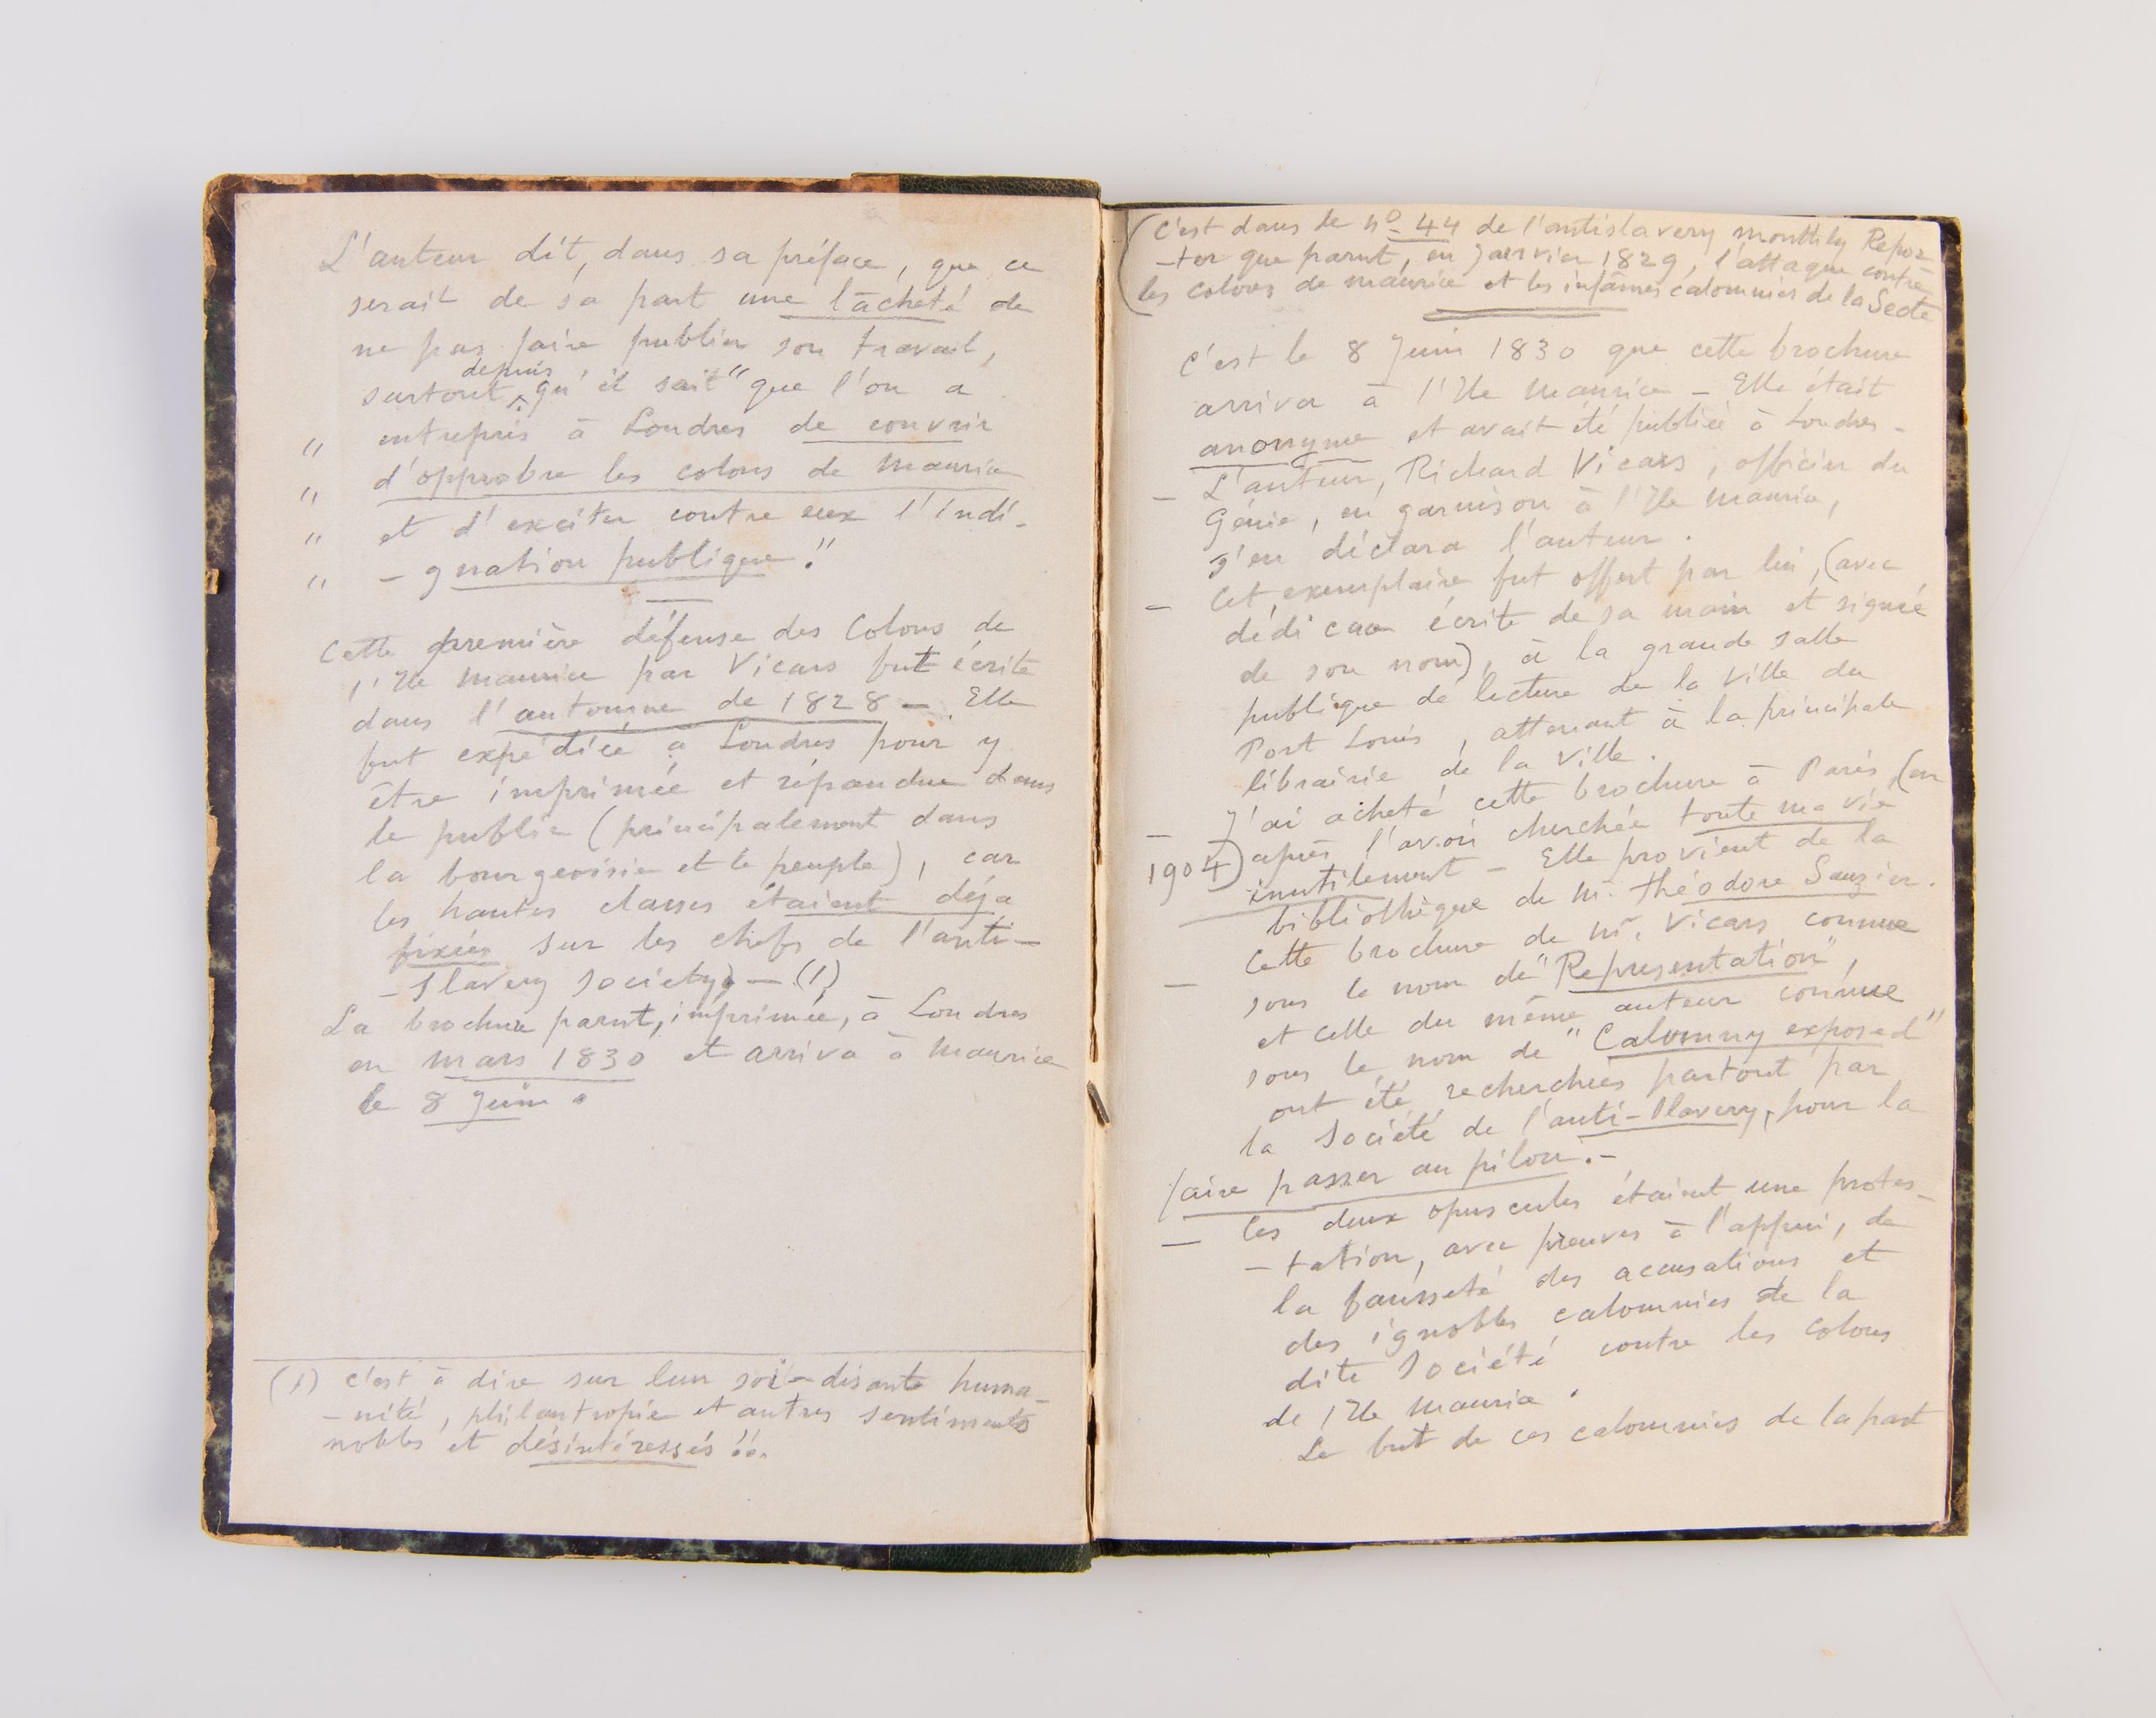 L'auteur dit, dans sa préface, que ce
serait de sa part une lâcheté de
ne pas faire publier son travail,
depuis
surtout qu'il sait "que l'on a
" entrepris à Londres de couvrir
" d'opprobre les colons de Maurice
" et d'exciter contre eux l'indi-
" - gnation publique."
Cette première défense des Colons de
l'Ile Maurice par Vicars fut écrite
dans l'automne de 1828 - Elle
fut expédiée à Londres pour y
être imprimée et répandue dans
le public (principalement dans
la bourgeoisie et le peuple), car
les hautes classes étaient déjà
fixées sur les chefs de l'anti-
- slavery society) - (1)
La brochure parut, imprimée, à Londres
en mars 1830 et arriva à Maurice
le 8 Juin.
(1) c'est à dire sur leur soi-disante huma-
- nité, philantropie et autres sentiments
nobles et désintéressés!!.
(C'est dans le no 44 de l'antislavery monthly Repor-
-ter que parut, en Janvier 1829, l'attaque contre
les colons de Maurice et les infâmes calomnies de la Secte
C'est le 8 Juin 1830 que cette brochure
arriva à l'Ile Maurice - Elle était
anonyme et avait été publiée à Londres -
- L'auteur, Richard Vicars, officier du
Génie, en garnison à l'Ile Maurice,
s'en déclara l'auteur.
- Cet exemplaire fut offert par lui, (avec
dédicace écrite de sa main et signée
de son nom), à la grande salle
publique de lecture de la Ville du
Port Louis, attenant à la principale
librairie de la Ville.
- J'ai acheté cette brochure à Paris, (en
1904) après l'avoir cherchée toute ma vie
inutilement - Elle provient de la
bibliothèque de M. Théodore Sauzier.
- Cette brochure de Mr. Vicars connue
sous le nom de "Representation",
et celle du même auteur connue
sous le nom de "Calumny exposed"
ont été recherchées partout par
la Société de l'anti-slavery, pour la
faire passer au pilon. -
- Ces deux opuscules étaient une protes-
- tation, avec preuves à l'appui, de
la fausseté des accusations et
des ignobles calomnies de la
dite Société contre les colons
de l'Ile Maurice.
Le but de ces calomnies de la part